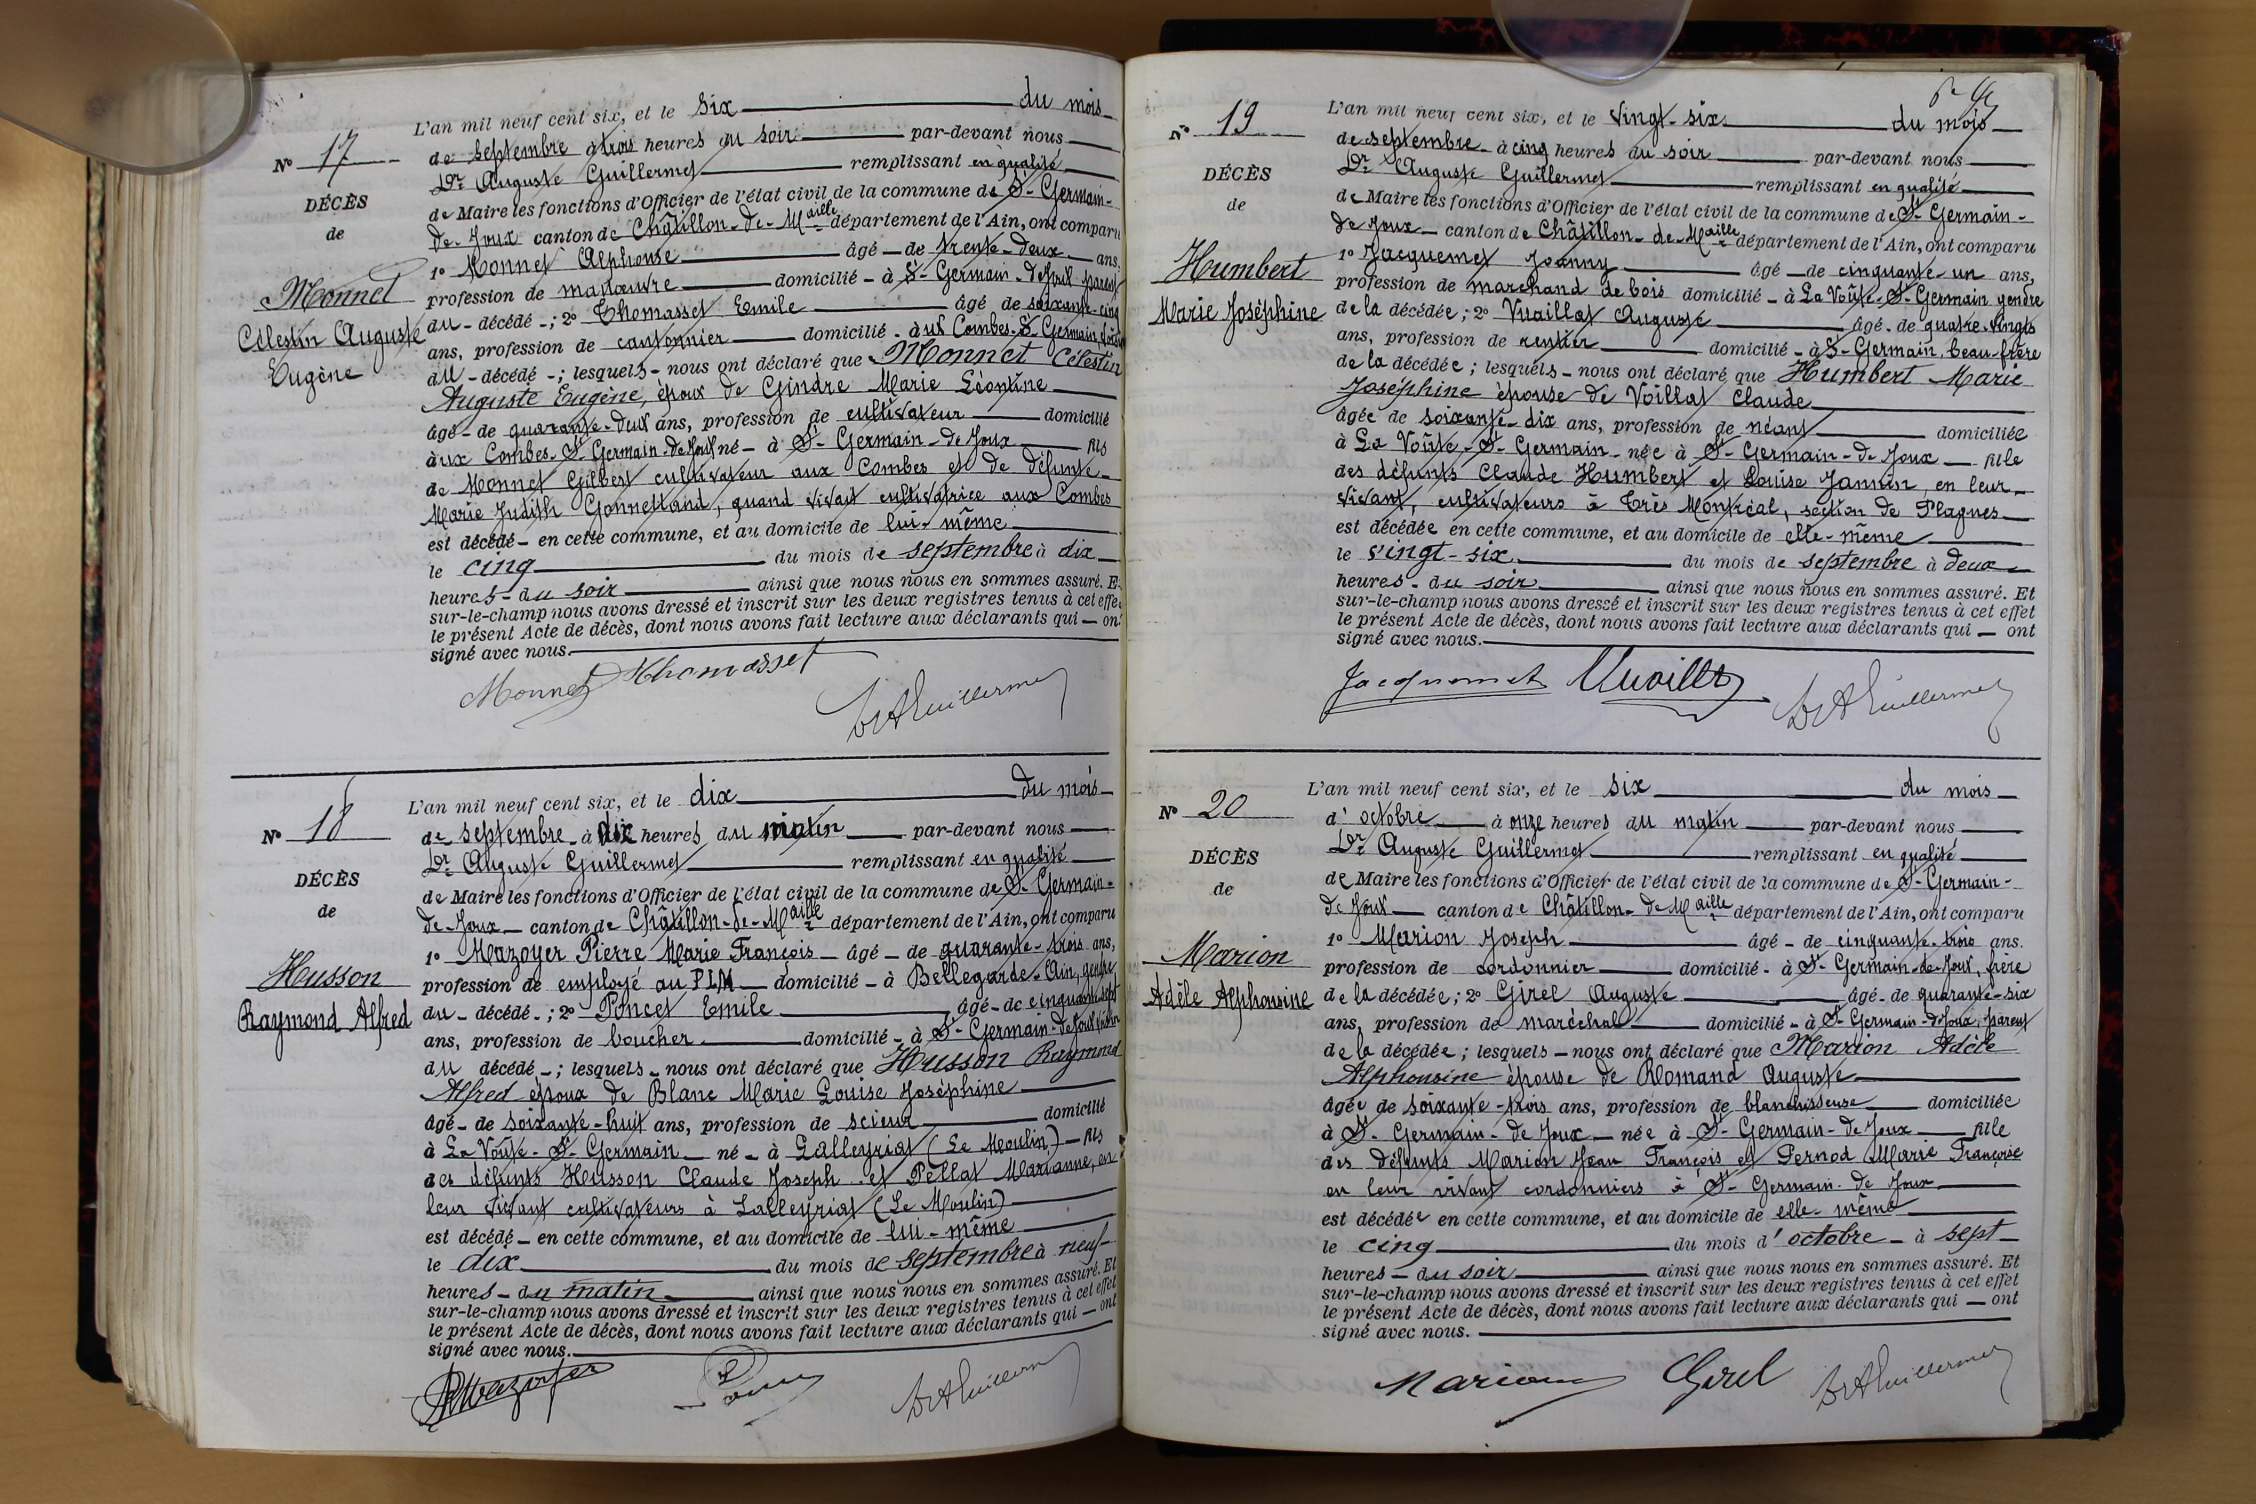 L'an mil neuf cent six, et le six du mois
Nº 17
de septembre à trois heures du soir par-devant nous
Dr Auguste Guillermet remplissant en qualité
DÉCÈS
de Maire les fonctions d'Officier de l'état civil de la commune de St-Germain-
de
de-Joux canton de Châtillon-de-Maille département de l'Ain, ont comparu
1º Monnet Alphonse âgé - de trente-deux ans,
Monnet
profession de manœuvre domicilié - à St-Germain-de-Joux parent
Célestin Auguste
du - décédé -; 2º Thomasset Emile âgé de soixante-cinq
Eugène
ans, profession de cantonnier domicilié - aux Combes-St-Germain,
du - décédé -; lesquels - nous ont déclaré que Monnet Célestin
Auguste Eugène, époux de Gindre Marie Léontine
âgé - de quarante-deux ans, profession de cultivateur domicilié
aux Combes-St-Germain-de-Joux né - à St-Germain-de-Joux fils
de Monnet Gilbert cultivateur aux Combes et de défunte
Marie Judith Gonnettand, quand vivait cultivatrice aux Combes
est décédé - en cette commune, et au domicile de lui-même
le cinq du mois de septembre à dix
heures - du soir ainsi que nous nous en sommes assuré. Et
sur-le-champ nous avons dressé et inscrit sur les deux registres tenus à cet effet
le présent Acte de décès, dont nous avons fait lecture aux déclarants qui - ont
signé avec nous.
Monnet Thomasset Dr A Guillermet
L'an mil neuf cent six, et le dix du mois
Nº 18
de septembre - à dix heures du matin par-devant nous
Dr Auguste Guillermet remplissant en qualité
DÉCÈS
de Maire les fonctions d'Officier de l'état civil de la commune de St-Germain-
de
de-Joux - canton de Châtillon-de-Maille département de l'Ain, ont comparu
1º Mazoyer Pierre Marie François - âgé - de quarante-trois ans,
Husson
profession de employé au PLM - domicilié - à Bellegarde-Ain, gendre
Raymond Alfred
du - décédé -; 2º Poncet Emile âgé - de cinquante-sept
ans, profession de boucher domicilié - à St-Germain-de-Joux
du décédé -; lesquels - nous ont déclaré que Husson Raymond
Alfred époux de Blanc Marie Louise Joséphine
âgé - de soixante-huit ans, profession de scieur domicilié
à La Voûte-St-Germain - né - à Lalleyriat (Le Moulin) - fils
des défunts Husson Claude Joseph et Pellat Marianne, en
leur vivant cultivateurs à Lalleyriat (Le Moulin)
est décédé - en cette commune, et au domicile de lui-même
le dix du mois de septembre à neuf
heures - du matin ainsi que nous nous en sommes assuré. Et
sur-le-champ nous avons dressé et inscrit sur les deux registres tenus à cet effet
le présent Acte de décès, dont nous avons fait lecture aux déclarants qui - ont
signé avec nous.
PMazoyer Dr A Guillermet
L'an mil neuf cent six, et le vingt-six du mois
Nº 19
de septembre - à cinq heures du soir par-devant nous
Dr Auguste Guillermet remplissant en qualité
DÉCÈS
de Maire les fonctions d'Officier de l'état civil de la commune de St-Germain-
de
de Joux - canton de Châtillon-de-Maille département de l'Ain, ont comparu
1º Jacquemet Joanny âgé - de cinquante-un ans,
Humbert
profession de marchand de bois domicilié - à La Voûte-St-Germain gendre
Marie Joséphine
de la décédée; 2º Vuaillat Auguste âgé - de quatre-vingts
ans, profession de rentier domicilié - à St-Germain, beau-frère
de la décédée; lesquels - nous ont déclaré que Humbert Marie
Joséphine épouse de Voillat Claude
âgée de soixante-dix ans, profession de néant domiciliée
à La Voûte-St-Germain - née à St-Germain-de-Joux - fille
des défunts Claude Humbert et Louise Jannin, en leur
vivant, cultivateurs à Très Montréal, section de Plagnes
est décédée en cette commune, et au domicile de elle-même
le vingt-six du mois de septembre à deux
heures - du soir ainsi que nous nous en sommes assuré. Et
sur-le-champ nous avons dressé et inscrit sur les deux registres tenus à cet effet
le présent Acte de décès, dont nous avons fait lecture aux déclarants qui - ont
signé avec nous.
Jacquemet Vuaillat Dr A Guillermet
L'an mil neuf cent six, et le six du mois
Nº 20
d'octobre à onze heures du matin par-devant nous
Dr Auguste Guillermet remplissant en qualité
DÉCÈS
de Maire les fonctions d'Officier de l'état civil de la commune de St-Germain-
de
de Joux - canton de Châtillon-de-Maille département de l'Ain, ont comparu
1º Marion Joseph âgé - de cinquante-trois ans.
Marion
profession de cordonnier domicilié - à St-Germain-de-Joux, frère
Adèle Alphonsine
de la décédée; 2º Girel Auguste âgé - de quarante-six
ans, profession de maréchal domicilié - à St-Germain-de-Joux, parent
de la décédée; lesquels - nous ont déclaré que Marion Adèle
Alphonsine épouse de Romand Auguste
âgée de soixante-trois ans, profession de blanchisseuse domiciliée
à St-Germain-de Joux - née à St-Germain-de Joux fille
des défunts Marion Jean François et Pernod Marie Françoise
en leur vivant cordonniers à St-Germain-de Joux
est décédée en cette commune, et au domicile de elle-même
le cinq du mois d'octobre - à sept
heures - du soir ainsi que nous nous en sommes assuré. Et
sur-le-champ nous avons dressé et inscrit sur les deux registres tenus à cet effet
le présent Acte de décès, dont nous avons fait lecture aux déclarants qui - ont
signé avec nous.
Marion Girel Dr A Guillermet